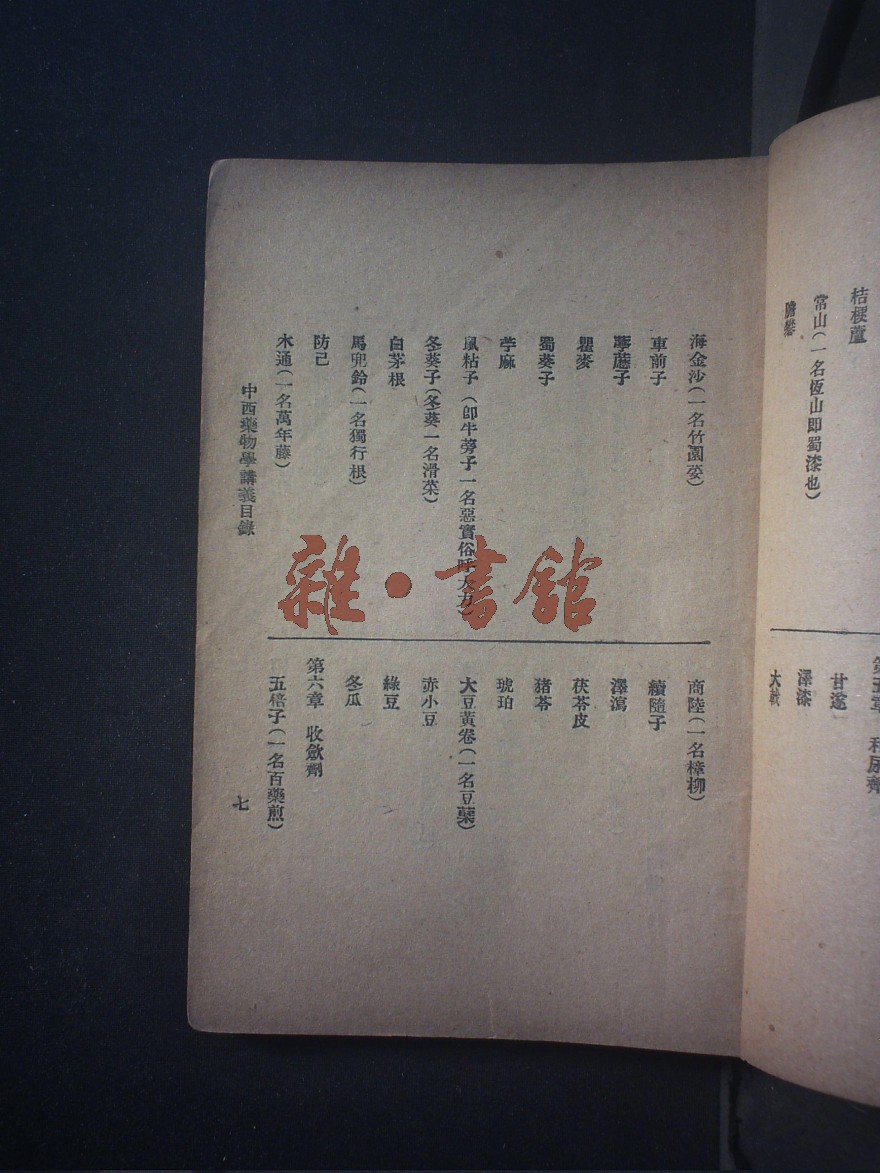 桔梗蘆
常山(一名恆山即蜀漆也)
膽礬
甘遂
澤漆
大戟
海金沙(一名竹園荽)
車前子
葶藶子
瞿麥
蜀葵子
苧麻
鼠粘子(即牛蒡子一名惡實俗呼大力)
冬葵子(冬葵一名滑菜)
白茅根
馬兜鈴(一名獨行根)
防己
木通(一名萬年藤)
商陸(一名樟柳)
續隨子
澤瀉
茯苓皮
猪苓
琥珀
大豆黃卷(一名豆蘗)
赤小豆
綠豆
冬瓜
第六章 收斂劑
五棓子(一名百藥煎)
中西藥物學講義目錄
七
雜·書館